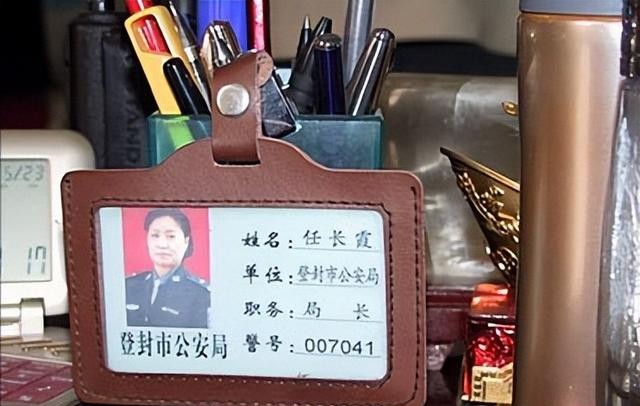 5/23
17
姓名：任长霞
单位：登封市公安局
职务：局 长
登封市公安局 警号：007041